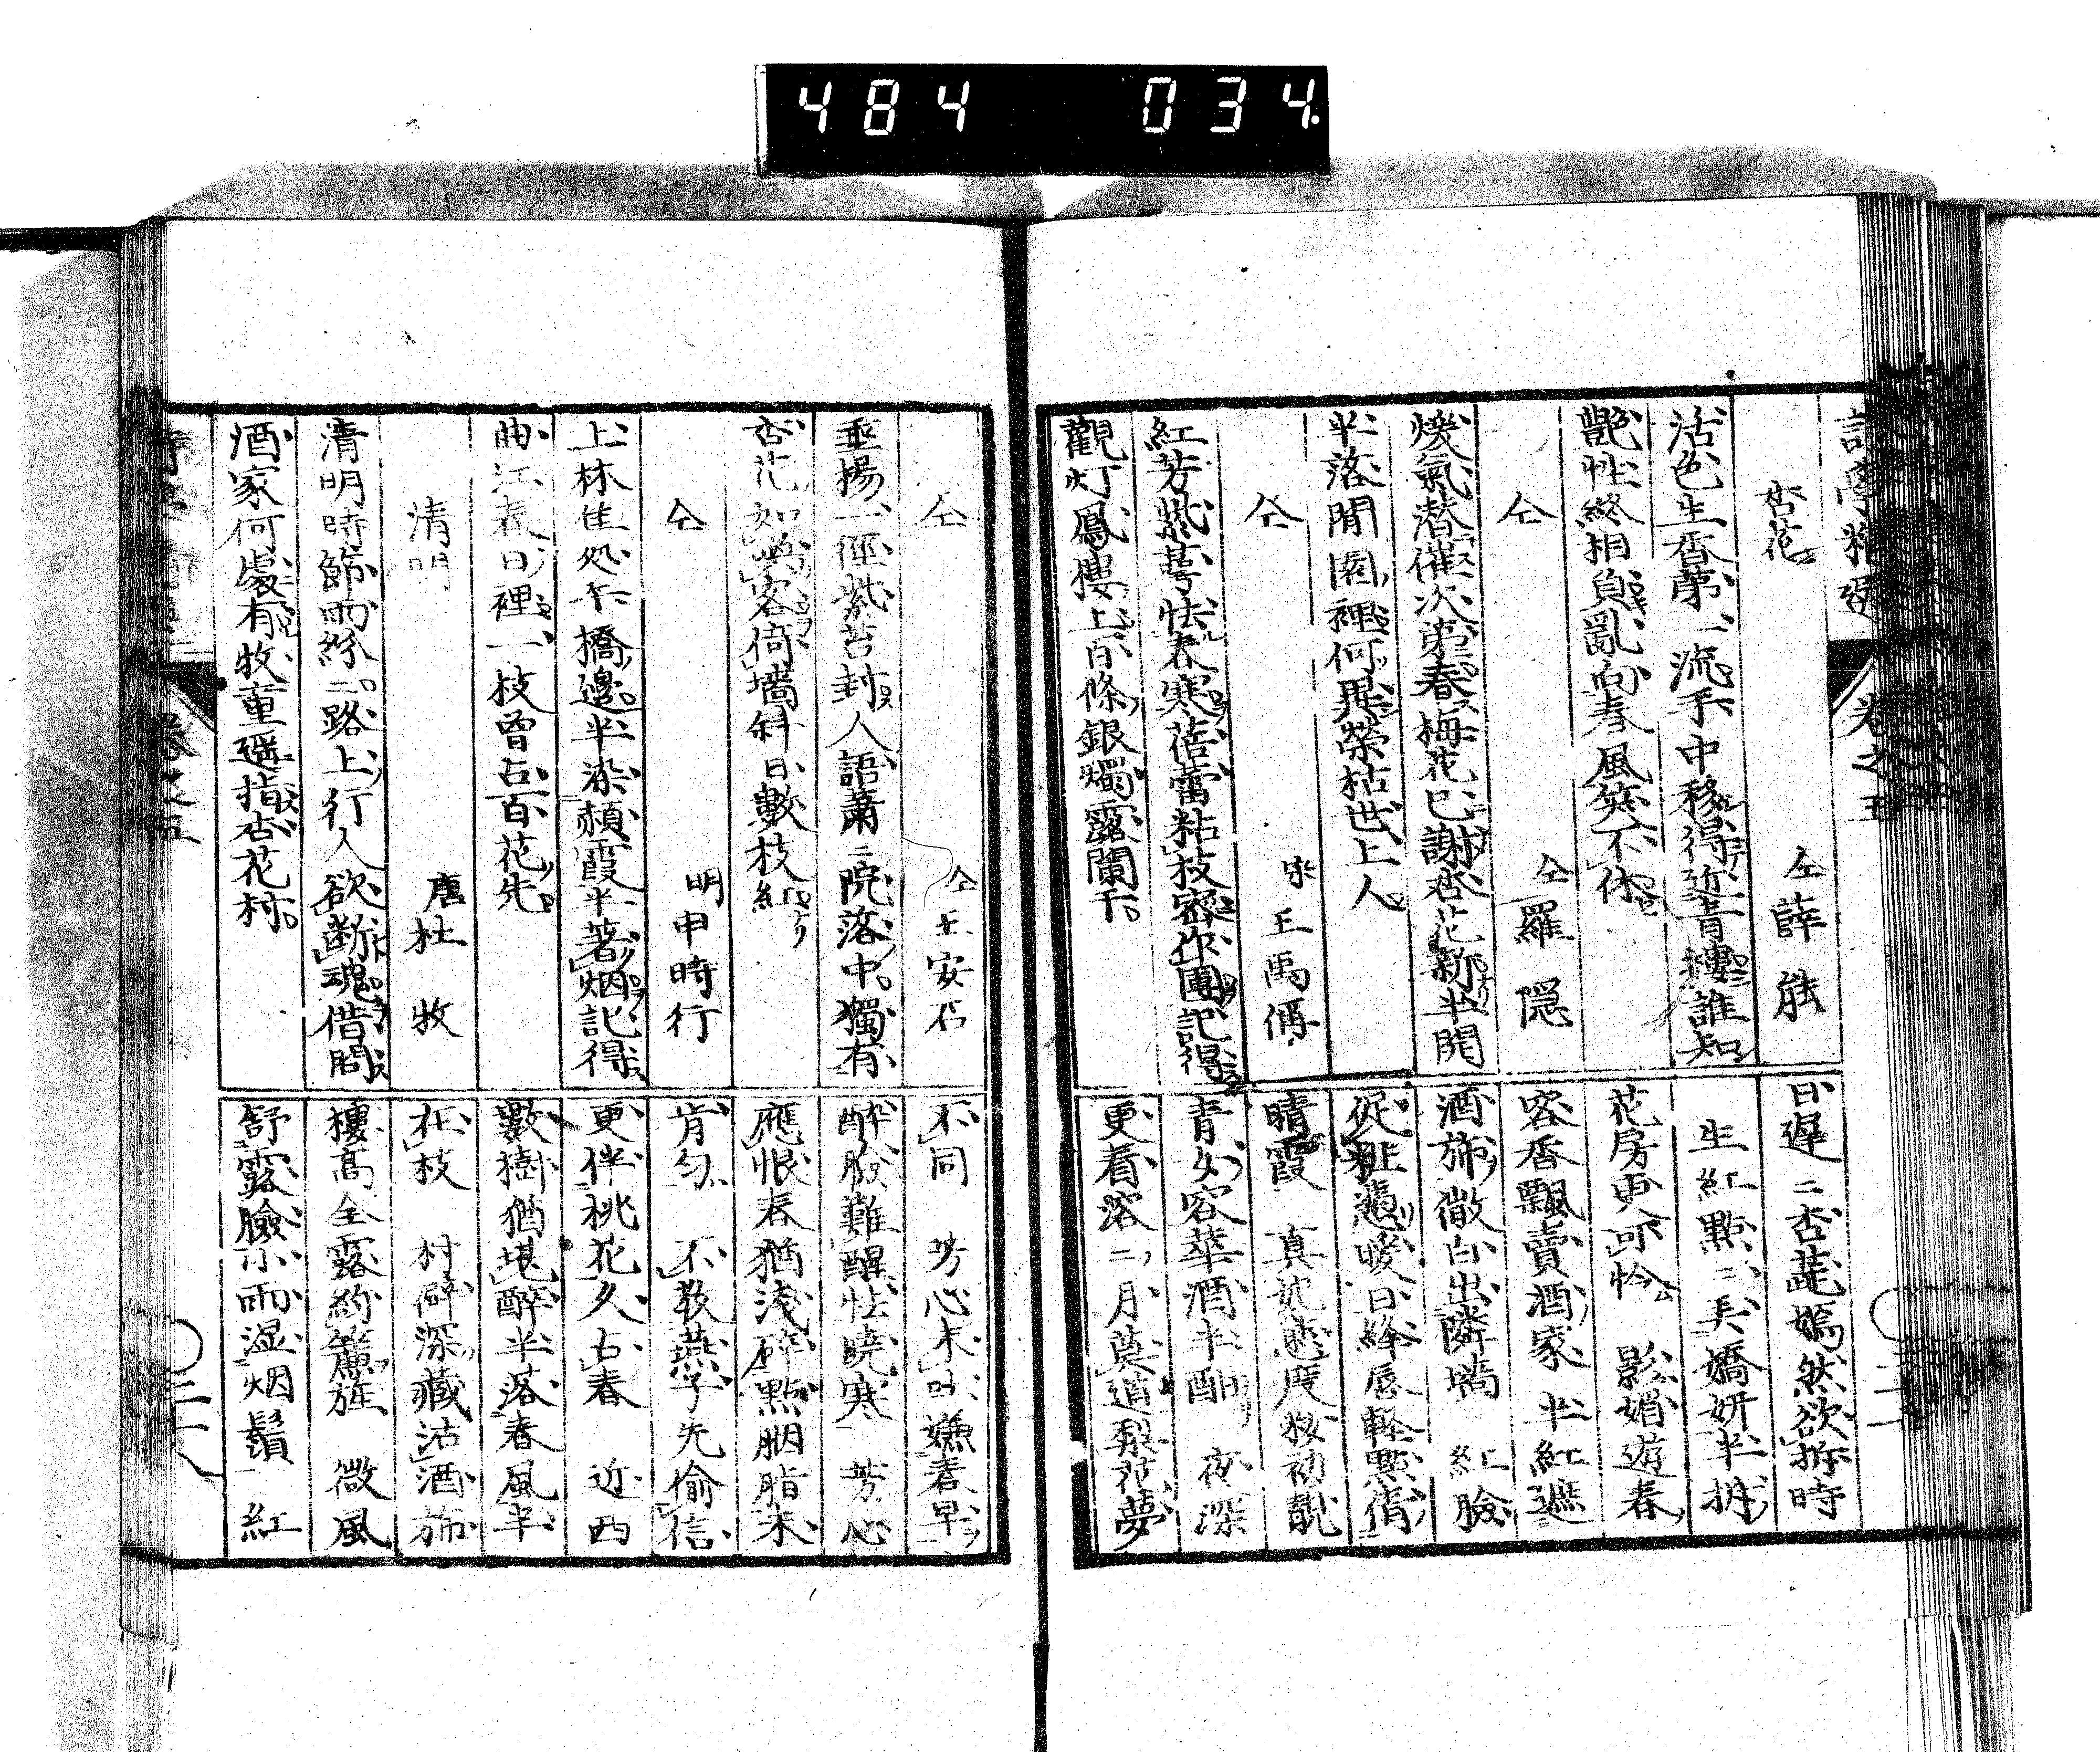 484 034.
杏花 仝 薛能
活色生香第一流手中移得近青樓誰知
艷性終相負亂向春風笑不休
仝 仝 羅隠
煖氣潜催次第春梅花已謝杏花新半開
半落閒園裡何異榮枯世上人
仝 宋 王禹偁
紅芳紫萼怯春寒蓓蕾粘枝密作團記得
觀灯鳳樓上百條銀燭露闌干
日遲〻杏蕋嫣然欲拆時
生紅點〻美嬌妍半拆
花房更可怜 影媚遊春
容香飄賣酒家 半紅遮
酒旆微白出隣墻 紅臉
促粧憑暖日絳唇輕點倩
晴霞 真 度 初靚
青女容華酒半酣 夜深
更看溶〻月莫道梨花夢
仝 仝 王安石
垂楊一徑紫苔封人語蕭〻院落中獨有
杏花如喚客倚墻斜日數枝紅
仝 明 申時行
上林佳処午橋邊半染頳霞半著烟記得
曲江春日裡一枝曾占百花先
清明 唐 杜牧
清明時節雨紛〻路上行人欲断魂借問
酒家何處有牧童遥指杏花村
不同 芳心未 嫌春早
酔臉難醒怯曉寒 芳心
應恨春猶淺 點胭脂未
肯匀 不教燕子先偷信
更伴桃花久占春 近西
數樹猶堪酔半落春風半
在枝 村僻深藏沽酒旆
樓高全露約簾旌 微風
舒露臉小雨湿烟鬟 紅
卷之五